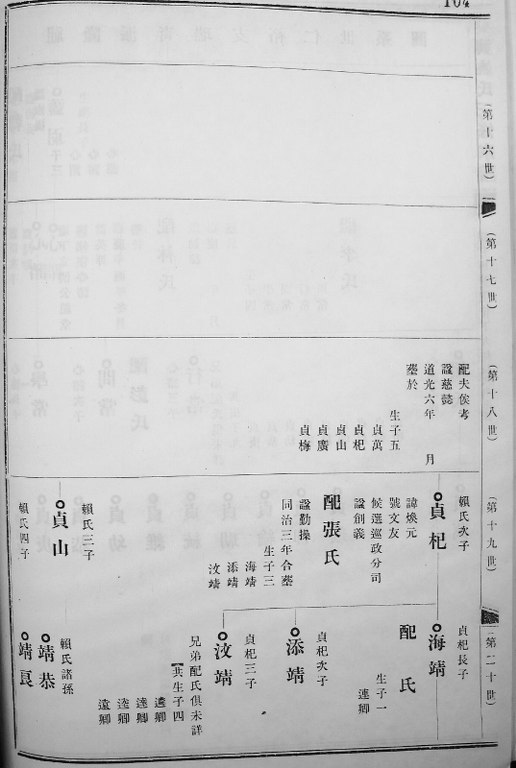 104
(第十六世)
(第十七世)
(第十八世)
配夫俟考
諡慈懿
道光六年 月
塟於
生子五
貞萬
貞杞
貞山
貞廣
貞梅
(第十九世)
賴氏次子
貞杞
諱煥元
號文友
候選巡政分司
諡創義
配張氏
諡勤操
同治三年合塟
生子三
海靖
添靖
汶靖
賴氏三子
貞山
賴氏四子
(第二十世)
貞杞長子
海靖
配 氏
生子一
連卿
貞杞次子
添靖
貞杞三子
汶靖
兄弟配氏俱未詳
共生子四
逵卿
逵卿
遠卿
賴氏諸孫
靖恭
靖良